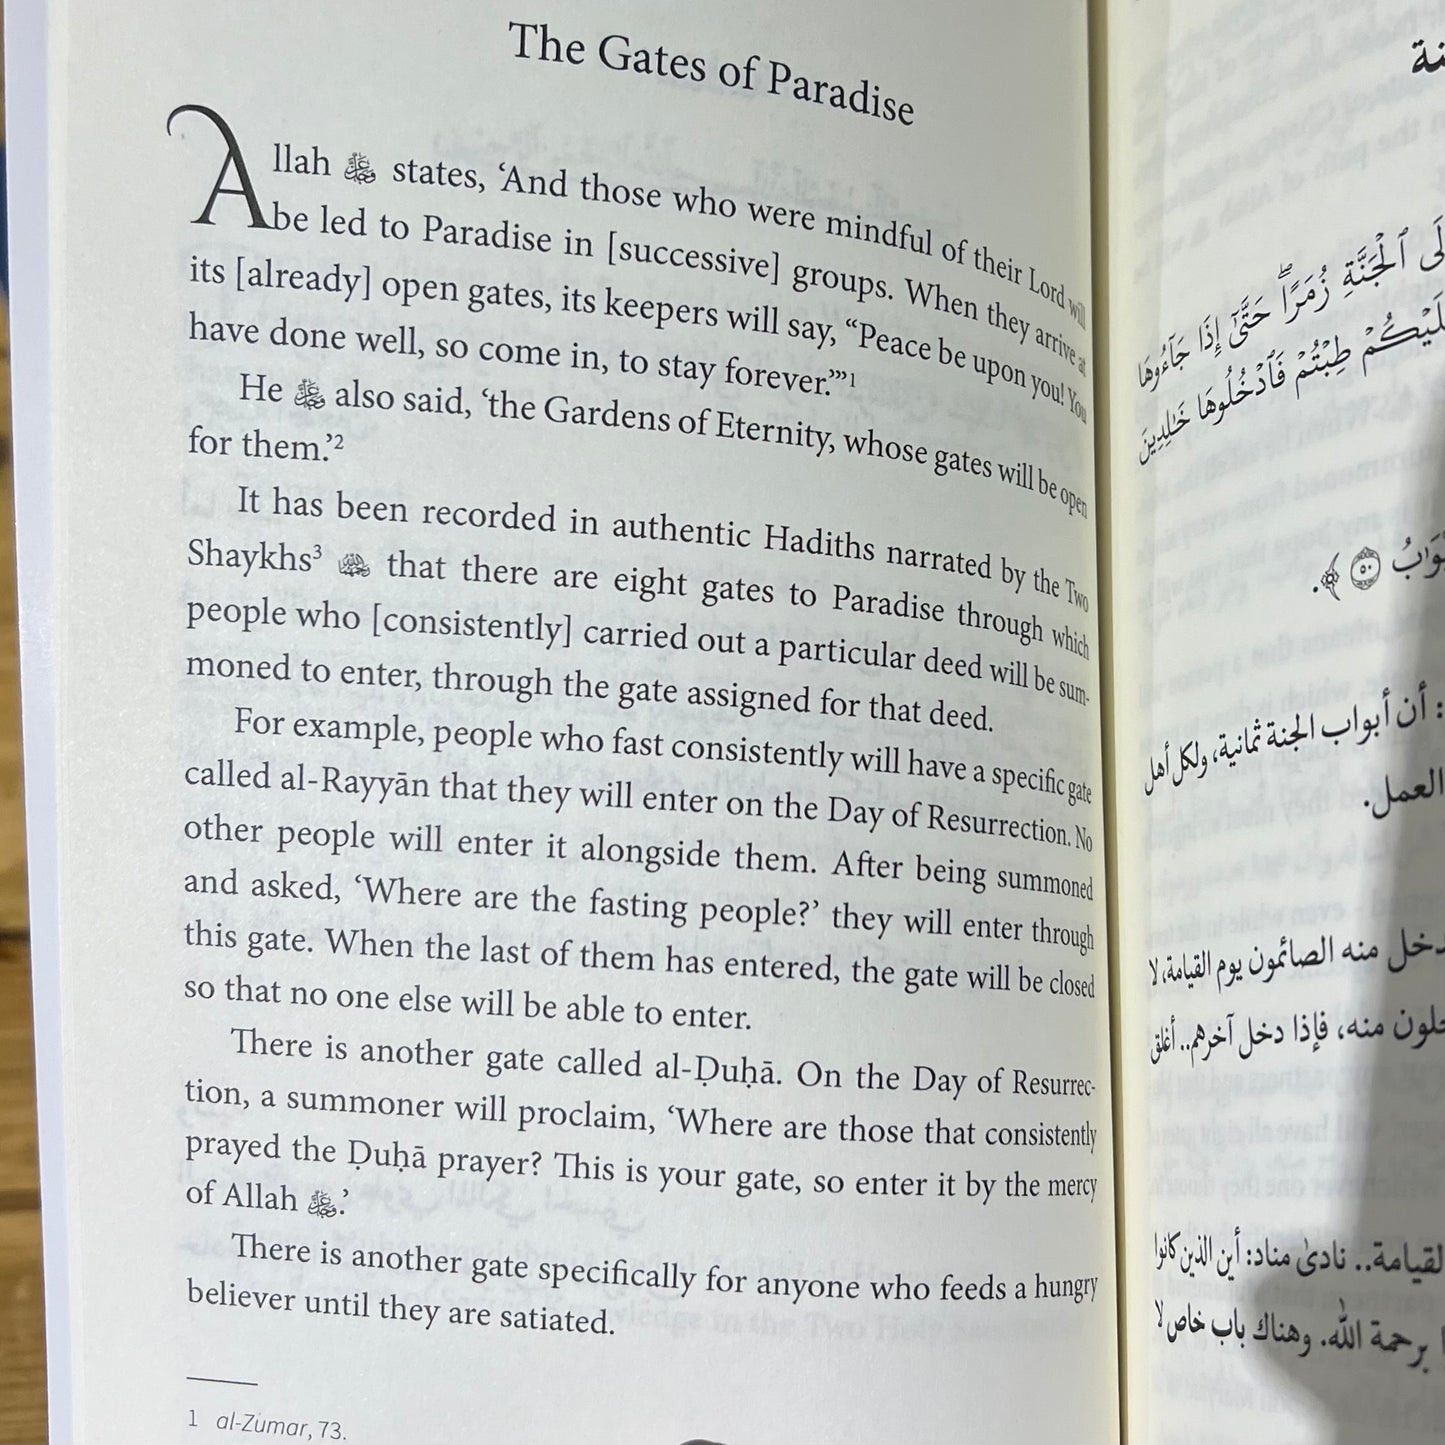 The Gates of Paradise
Allah ﷻ states, ‘And those who were mindful of their Lord will
be led to Paradise in [successive] groups. When they arrive at
its [already] open gates, its keepers will say, “Peace be upon you! You
have done well, so come in, to stay forever.”’1
He ﷻ also said, ‘the Gardens of Eternity, whose gates will be open
for them.’2
It has been recorded in authentic Hadiths narrated by the Two
Shaykhs3 that there are eight gates to Paradise through which
people who [consistently] carried out a particular deed will be sum-
moned to enter, through the gate assigned for that deed.
For example, people who fast consistently will have a specific gate
called al-Rayyān that they will enter on the Day of Resurrection. No
other people will enter it alongside them. After being summoned
and asked, ‘Where are the fasting people?’ they will enter through
this gate. When the last of them has entered, the gate will be closed
so that no one else will be able to enter.
There is another gate called al-Ḍuḥā. On the Day of Resurrec-
tion, a summoner will proclaim, ‘Where are those that consistently
prayed the Ḍuḥā prayer? This is your gate, so enter it by the mercy
of Allah ﷻ.’
There is another gate specifically for anyone who feeds a hungry
believer until they are satiated.
1 al-Zumar, 73.
ٱلْجَنَّةِ زُمَرًا ۖ حَتَّىٰٓ إِذَا جَآءُوهَا
طِبْتُمْ فَٱدْخُلُوهَا خَٰلِدِينَ
: أن أبواب الجنة ثمانية، ولكل أهل
العمل.
منه الصائمون يوم القيامة، لا
منه، فإذا دخل آخرهم.. أغلق
القيامة.. نادىٰ مناد: أين الذين كانوا
برحمة الله. وهناك باب خاص لا